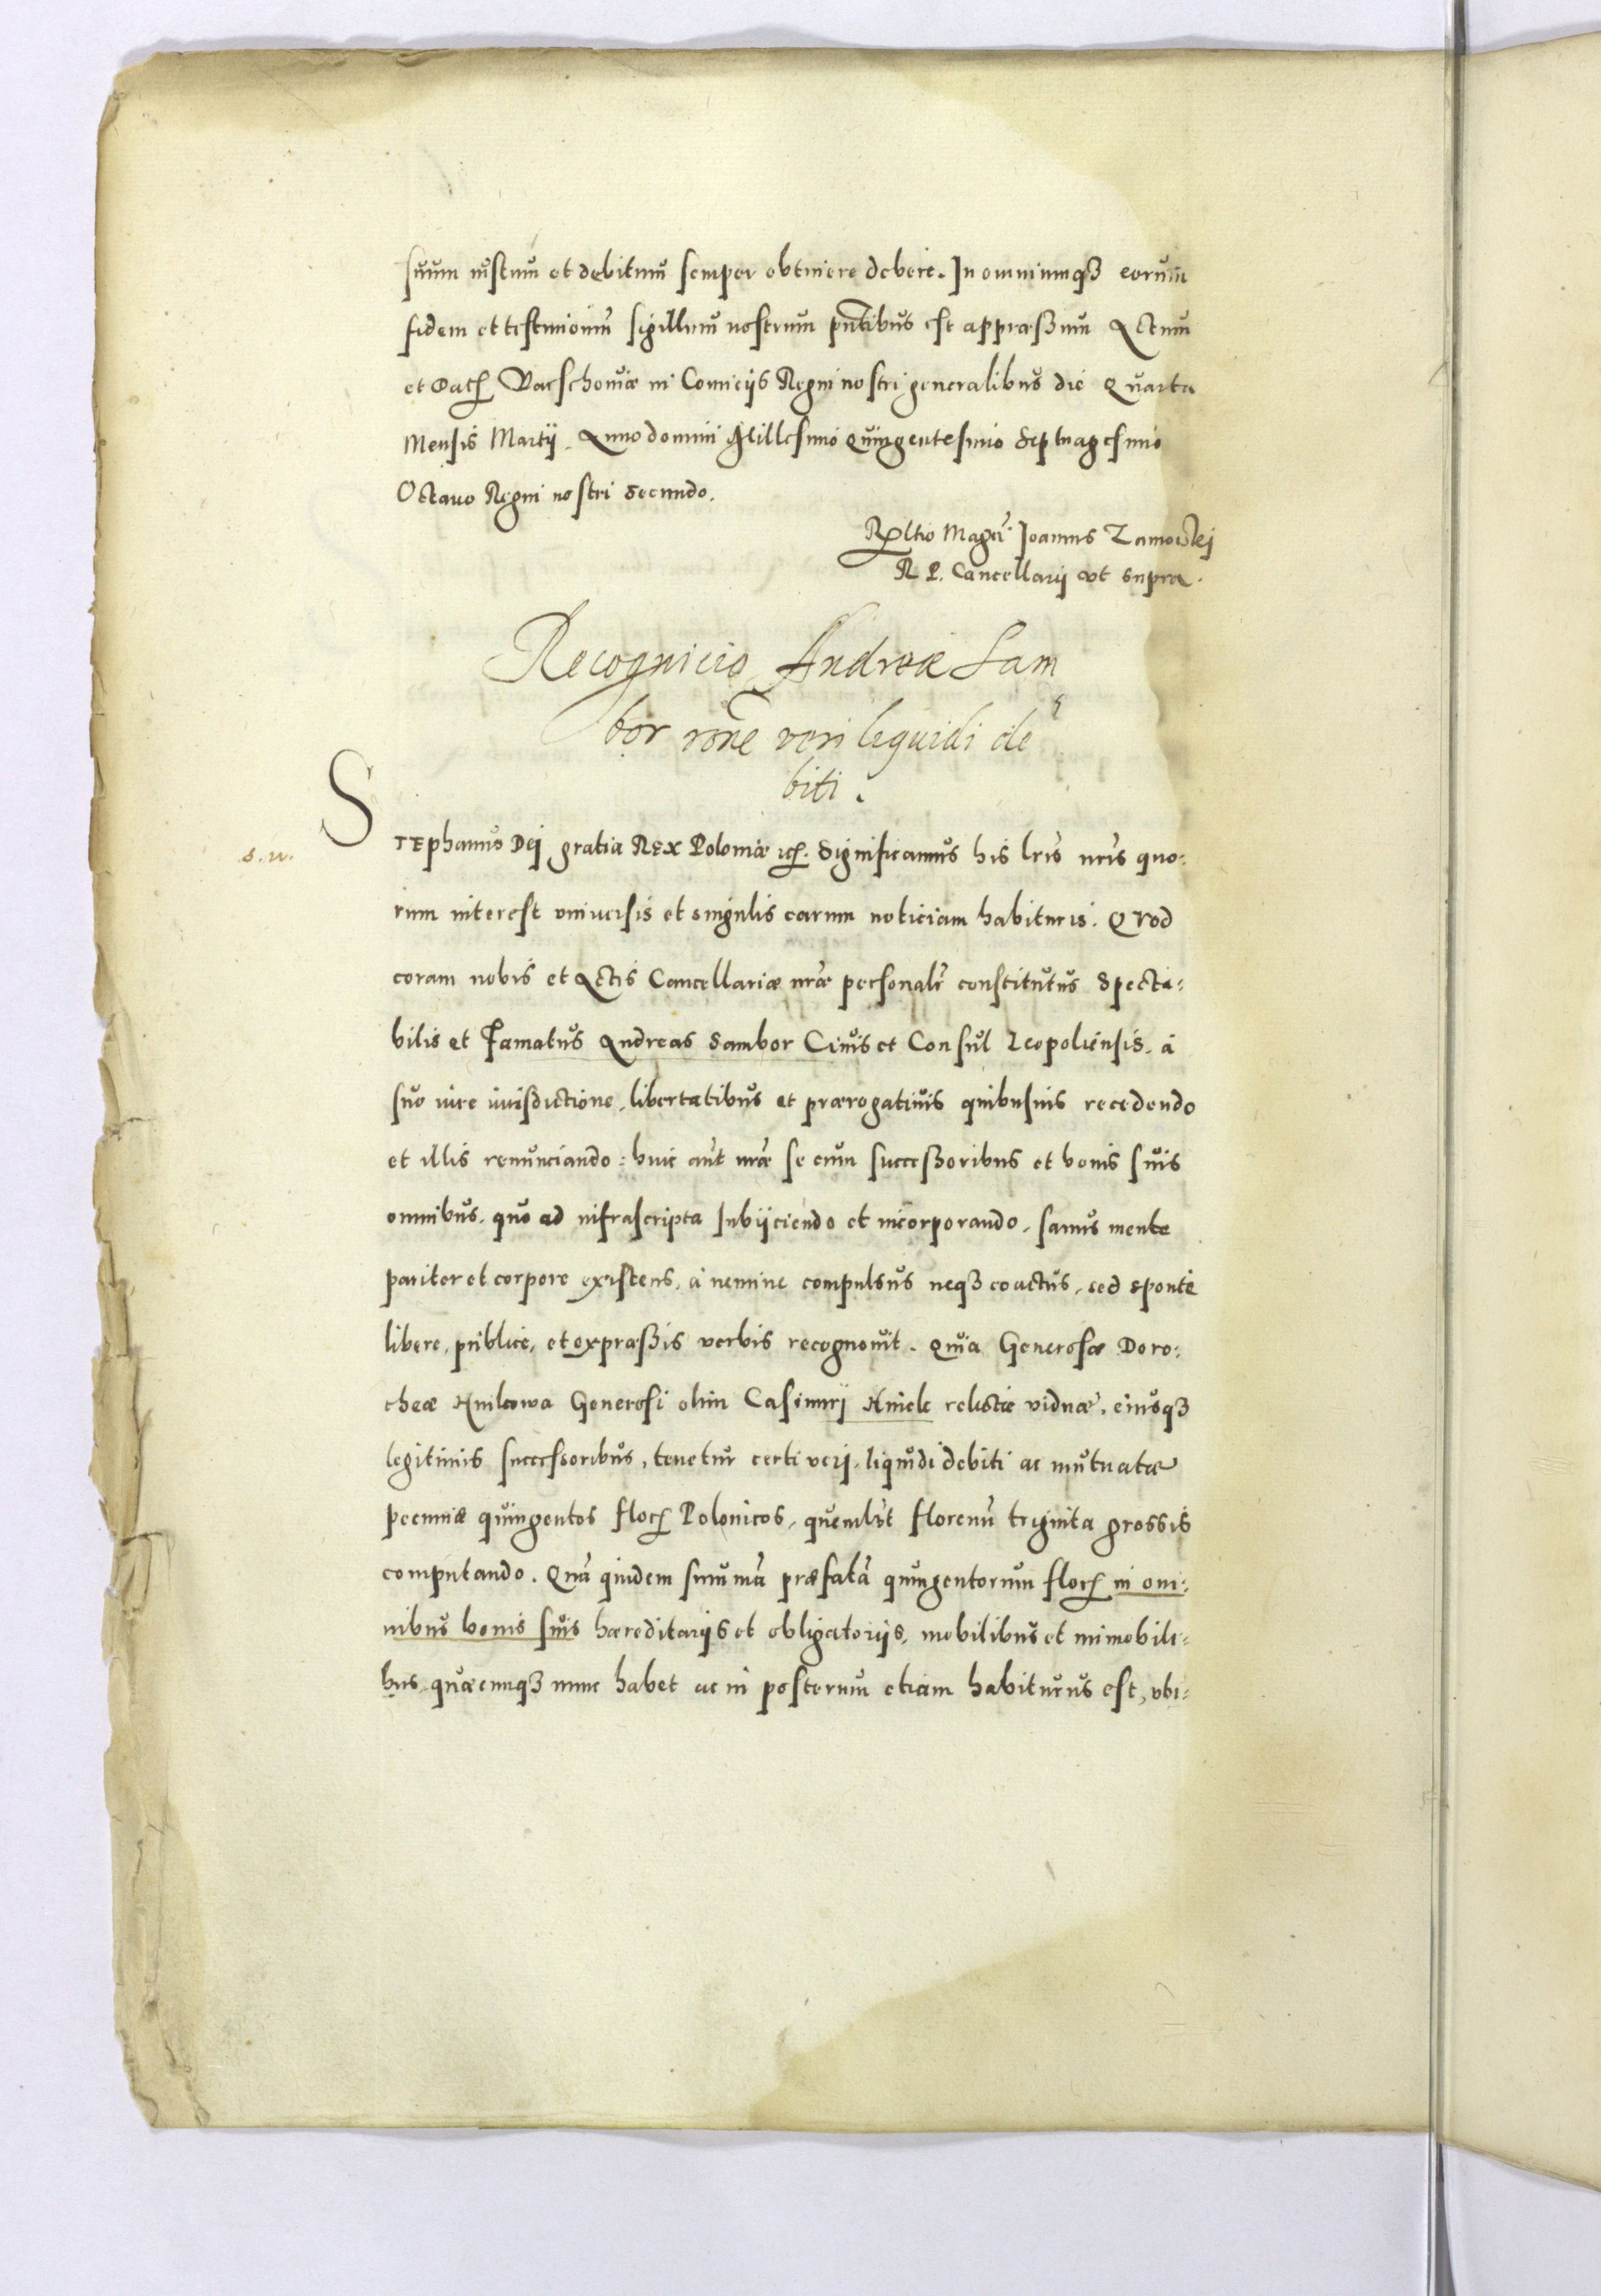 suum iustum et debitum semper obtinere debere. In omniumqz eorum
fidem et testimoniu sigillum nostrum pntibus est appressum Actum
et Dat Varschoviæ in Comicijs Regni nostri generalibus die Quarta
Mensis Martij. Anno domini Millesimo Quingentesimo Septuagesimo
Octavo Regni nostri Secundo.
Rltio Magci Joannis Zamoiskj
R P. Cancellarij vt supra.
Recognicio Andreæ Sam
bor rōne veri liquidi de
biti.
s. w.
STEphanus Dej gratia REX Poloniæ etc. Significamus his lris nris quo:
rum interest vniversis et singulis earum noticiam habituris. Quod
coram nobis et Actis Cancellariæ nræ personalr constitutus Specta:
bilis et Famatus Andreas Sambor Civis et Consul Leopoliensis. a
suo iure iurisdictione, libertatibus et prærogativis quibusuis recedendo
et illis renunciando: huic aut nræ se cum successoribus et bonis suis
omnibus. quo ad infrascripta subijciendo et incorporando. sanus mente
pariter et corpore existens, à nemine compulsus neqz coactus, sed sponte
libere, publice, et expressis verbis recognovit. Quia Generosæ Doro:
theæ Kniلowa Generosi olim Casimirj Kniele relictæ viduæ. eiusqz
legitimis successoribus, tenetur certi verj. liquidi debiti ac mutuatæ
pecuniæ quingentos flor Polonicos, quemlbt florenu triginta grossis
computando. Quā quidem summā præfatā quingentorum flor in om:
nibus bonis suis hæreditarijs et obligatorijs, mobilibus et immobili:
bus, quæcunqz nunc habet ac in posterum etiam habiturus est, vbi: